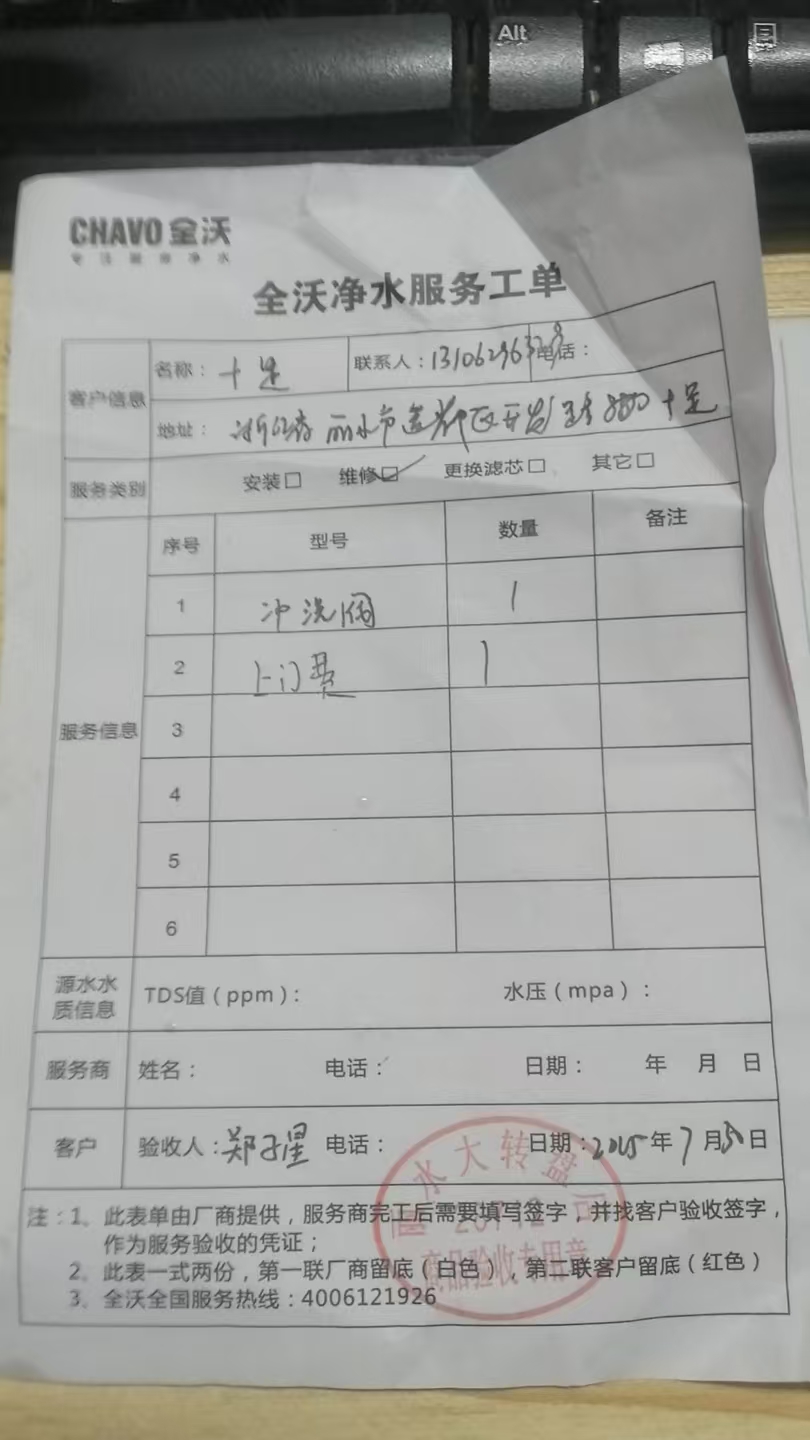 Alt
CHAVO 全沃
专注商用净水
全沃净水服务工单
客户信息
名称：十足 联系人：13106296 电话：
地址：浙江省丽水市莲都区开发 十足
服务类别 安装□ 维修☑ 更换滤芯□ 其它□
服务信息
序号 型号 数量 备注
1 冲洗阀 1
2 上门费 1
3
4
5
6
源水水质信息 TDS值（ppm）： 水压（mpa）：
服务商 姓名： 电话： 日期： 年 月 日
客户 验收人：郑子星 电话： 日期：2025年7月30日
水大转盘店
商品验收专用章
注：1、此表单由厂商提供，服务商完工后需要填写签字，并找客户验收签字，
作为服务验收的凭证；
2、此表一式两份，第一联厂商留底（白色），第二联客户留底（红色）
3、全沃全国服务热线：4006121926